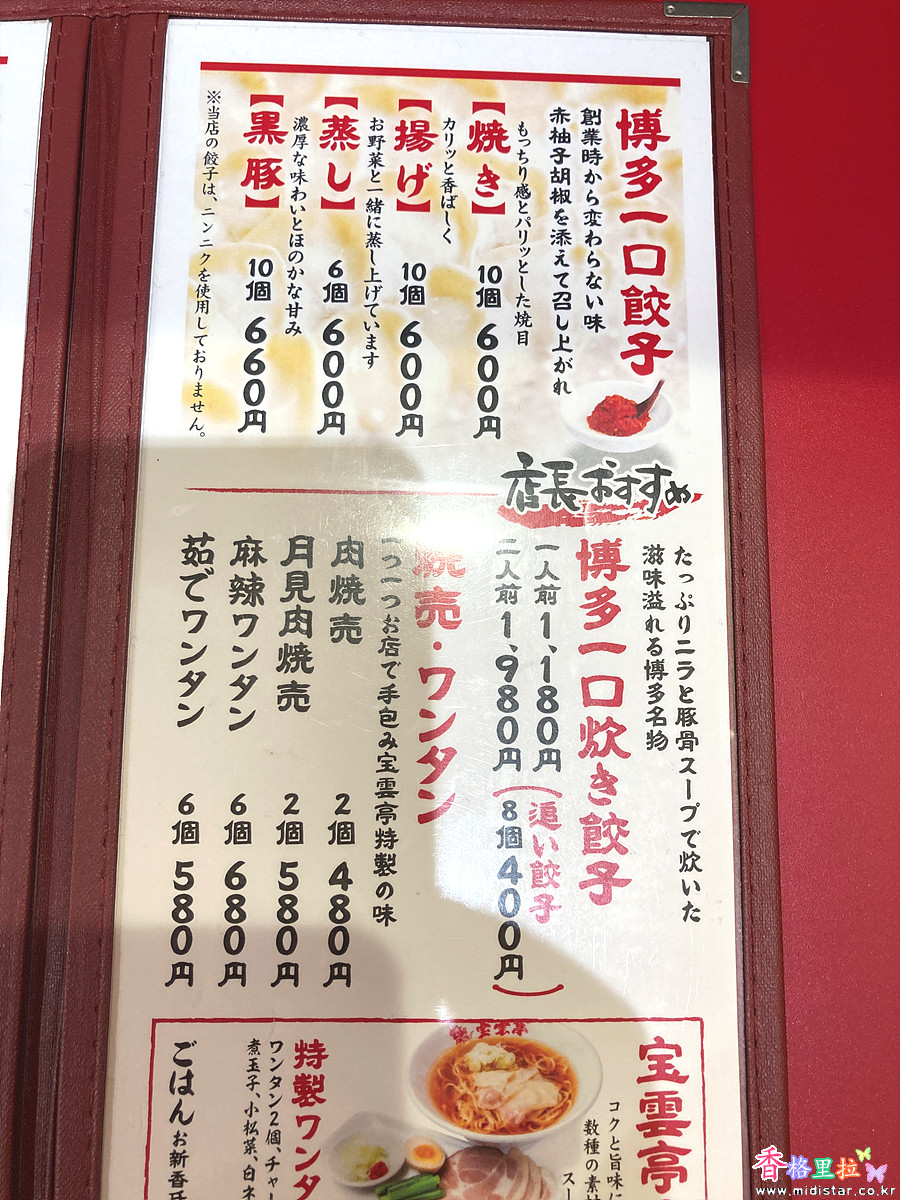 博多一口餃子
創業時から変わらない味
赤柚子胡椒を添えて召し上がれ
もっちり感とパリッとした焼目
【焼き】 10個 600円
カリッと香ばしく
【揚げ】 10個 600円
お野菜と一緒に蒸し上げています
【蒸し】 6個 600円
濃厚な味わいとほのかな甘み
【黒豚】 10個 660円
※当店の餃子は、ニンニクを使用しておりません。
店長おすすめ
たっぷりニラと豚骨スープで炊いた
滋味溢れる博多名物
博多一口炊き餃子
一人前 1,180円
二人前 1,980円
(追い餃子
8個 400円)
焼売・ワンタン
一つ一つお店で手包み宝雲亭特製の味
肉焼売 2個 480円
月見肉焼売 2個 580円
麻辣ワンタン 6個 680円
茹でワンタン 6個 580円
宝雲亭
コクと旨味に
数種の素材
スー
宝雲亭
特製ワンタ
ワンタン2個、チャー
煮玉子、小松菜、白ネ
ごはん お新香
香格里拉
www.midistar.co.kr